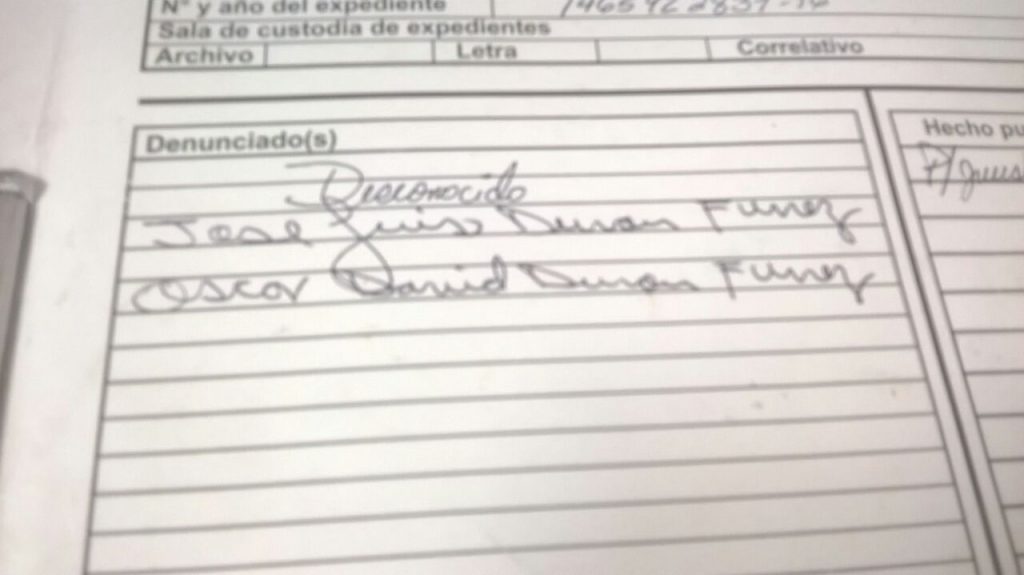 N° y año del expediente
Sala de custodia de expedientes
Archivo Letra Correlativo
Denunciado(s)
Hecho pu
Desconocido
Jose Luis Duron Funez
Oscar David Duron Funez